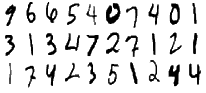 9665407401
3134727121
1742351244